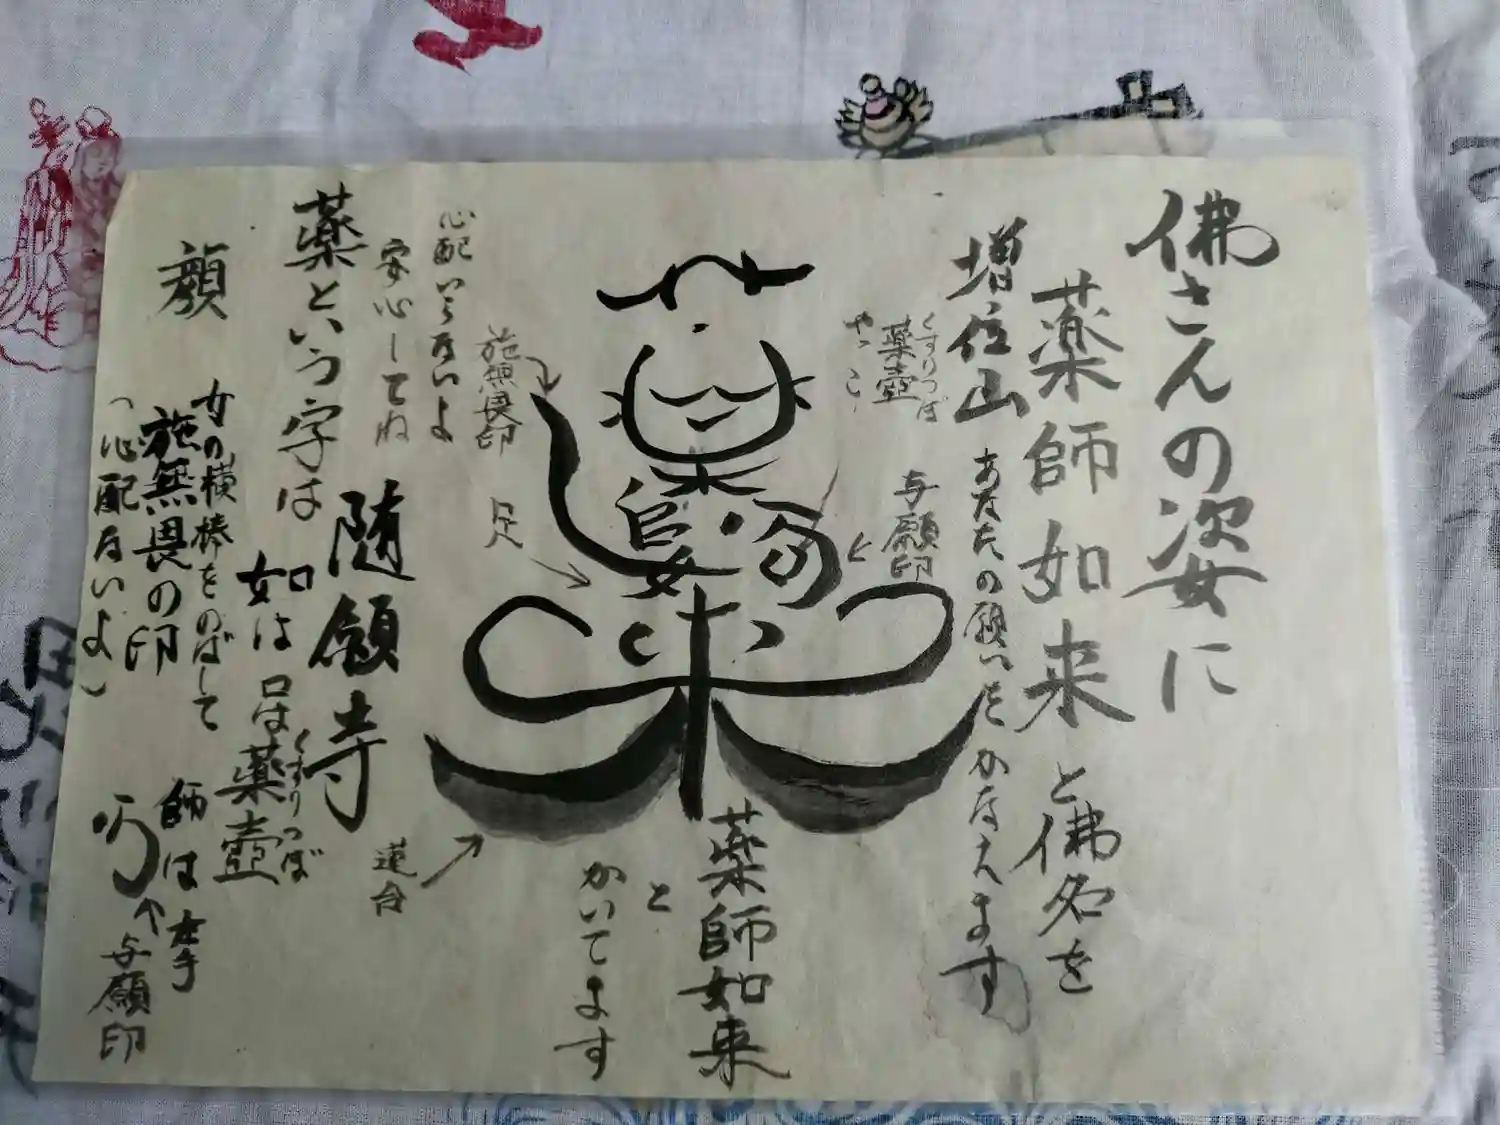 佛さんの姿に
薬師如来と佛名を
増位山
あなたの願いをかなえます
くすりつぼ
薬壺
与願印
薬師如来
と
かいてます
施無畏印
足
蓮台
心配いらないよ
安心してね
随願寺
薬という字は
顔
如は口は薬壺
くすりつぼ
女の横棒をのばして
施無畏の印
(心配ないよ)
師は
与願印